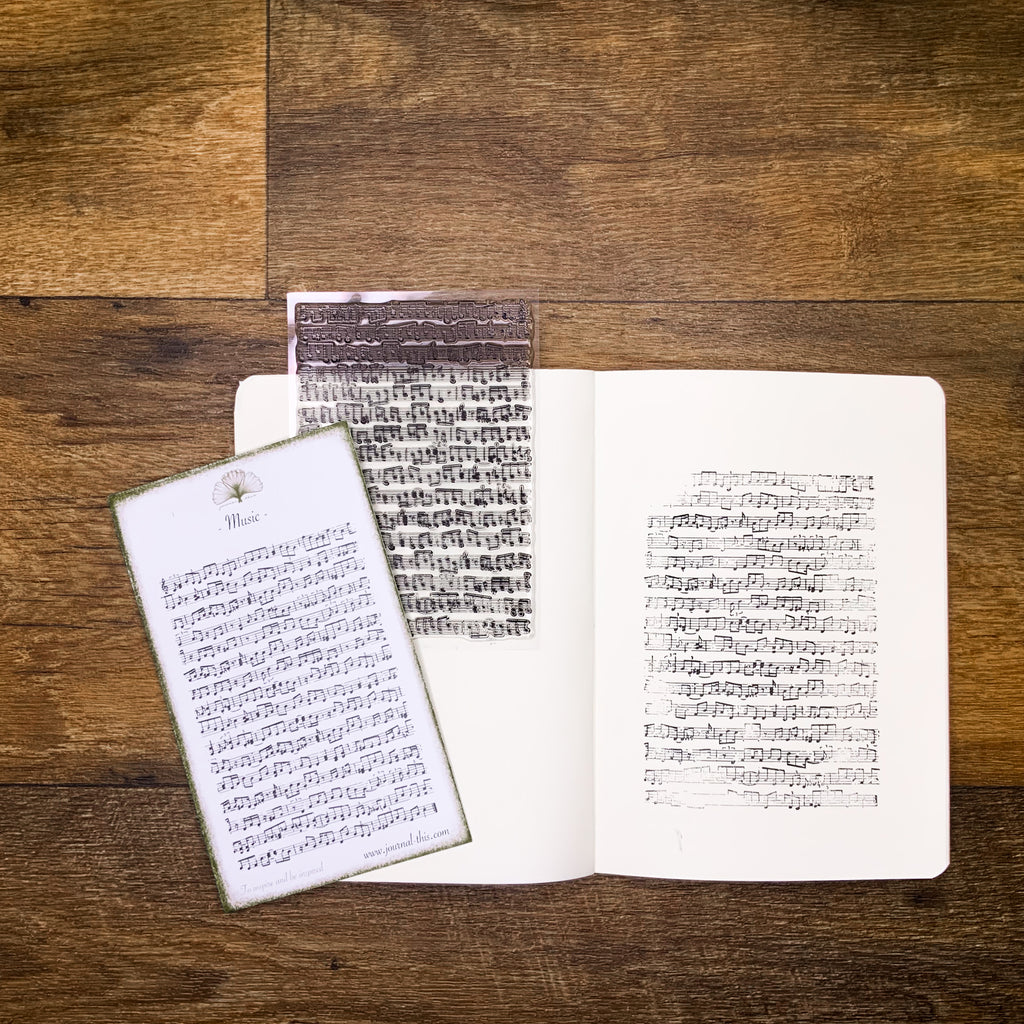 - Music -
www.journal-this.com
To inspire and be inspired